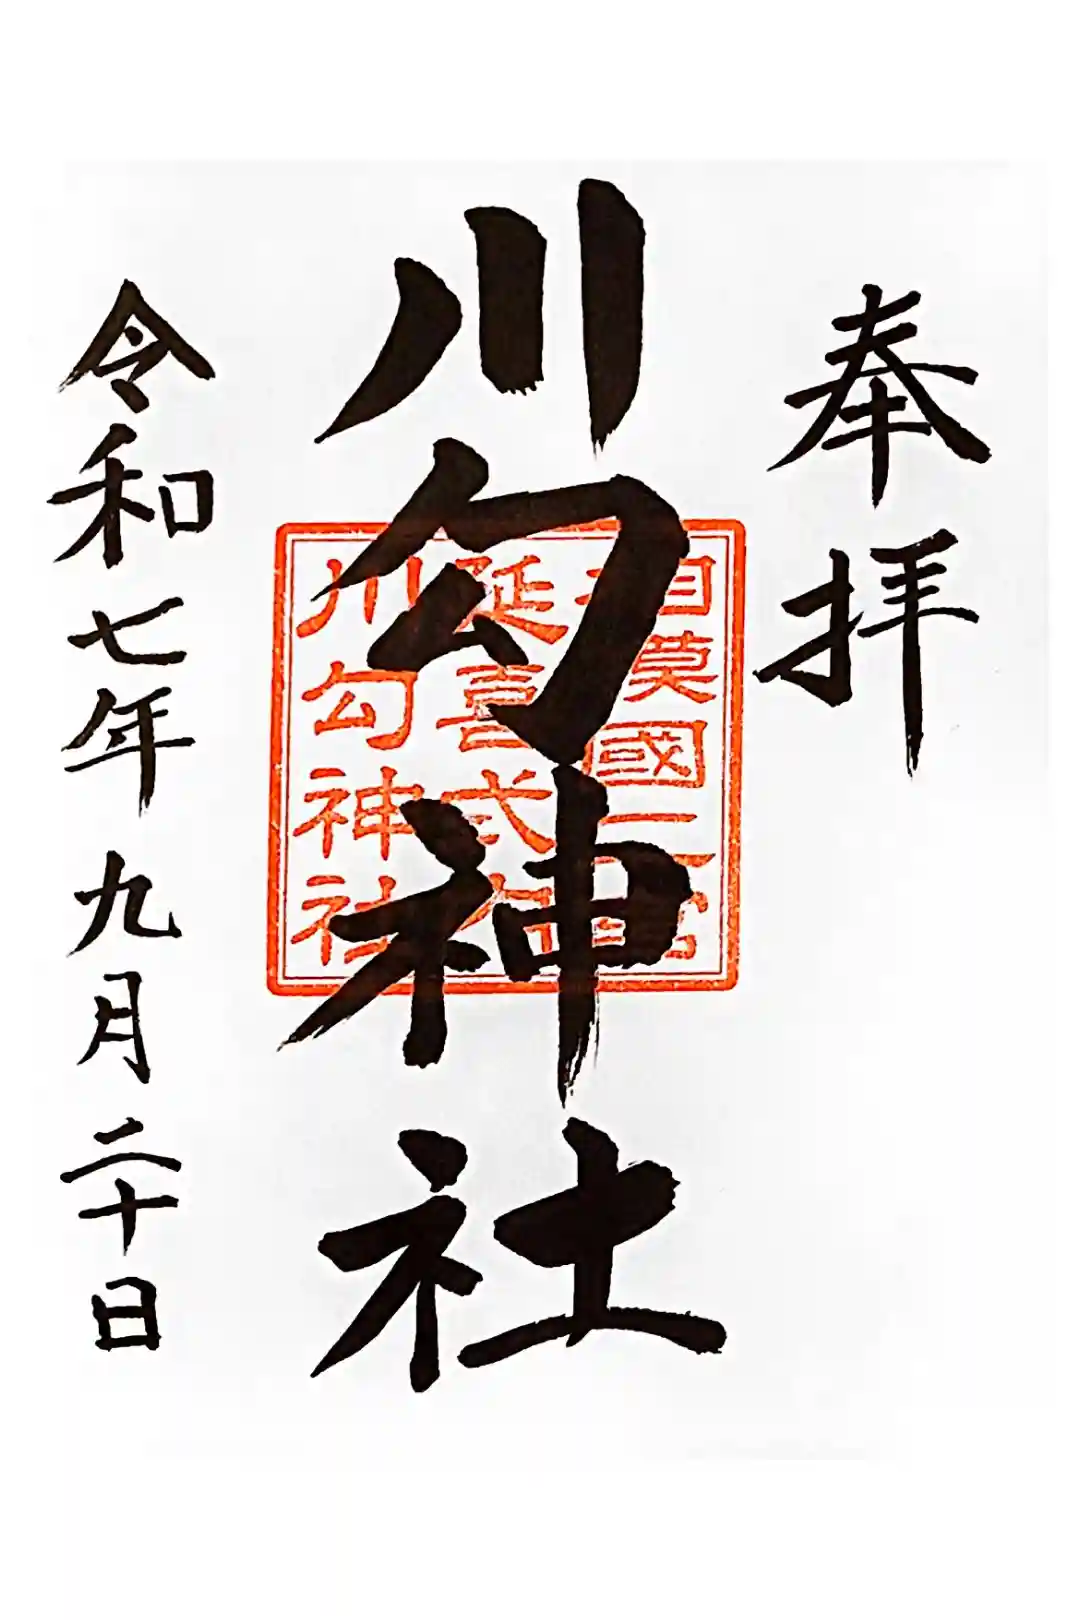 奉拝
川勾神社
相模國二宮
延喜式内
川勾神社
令和七年九月二十日